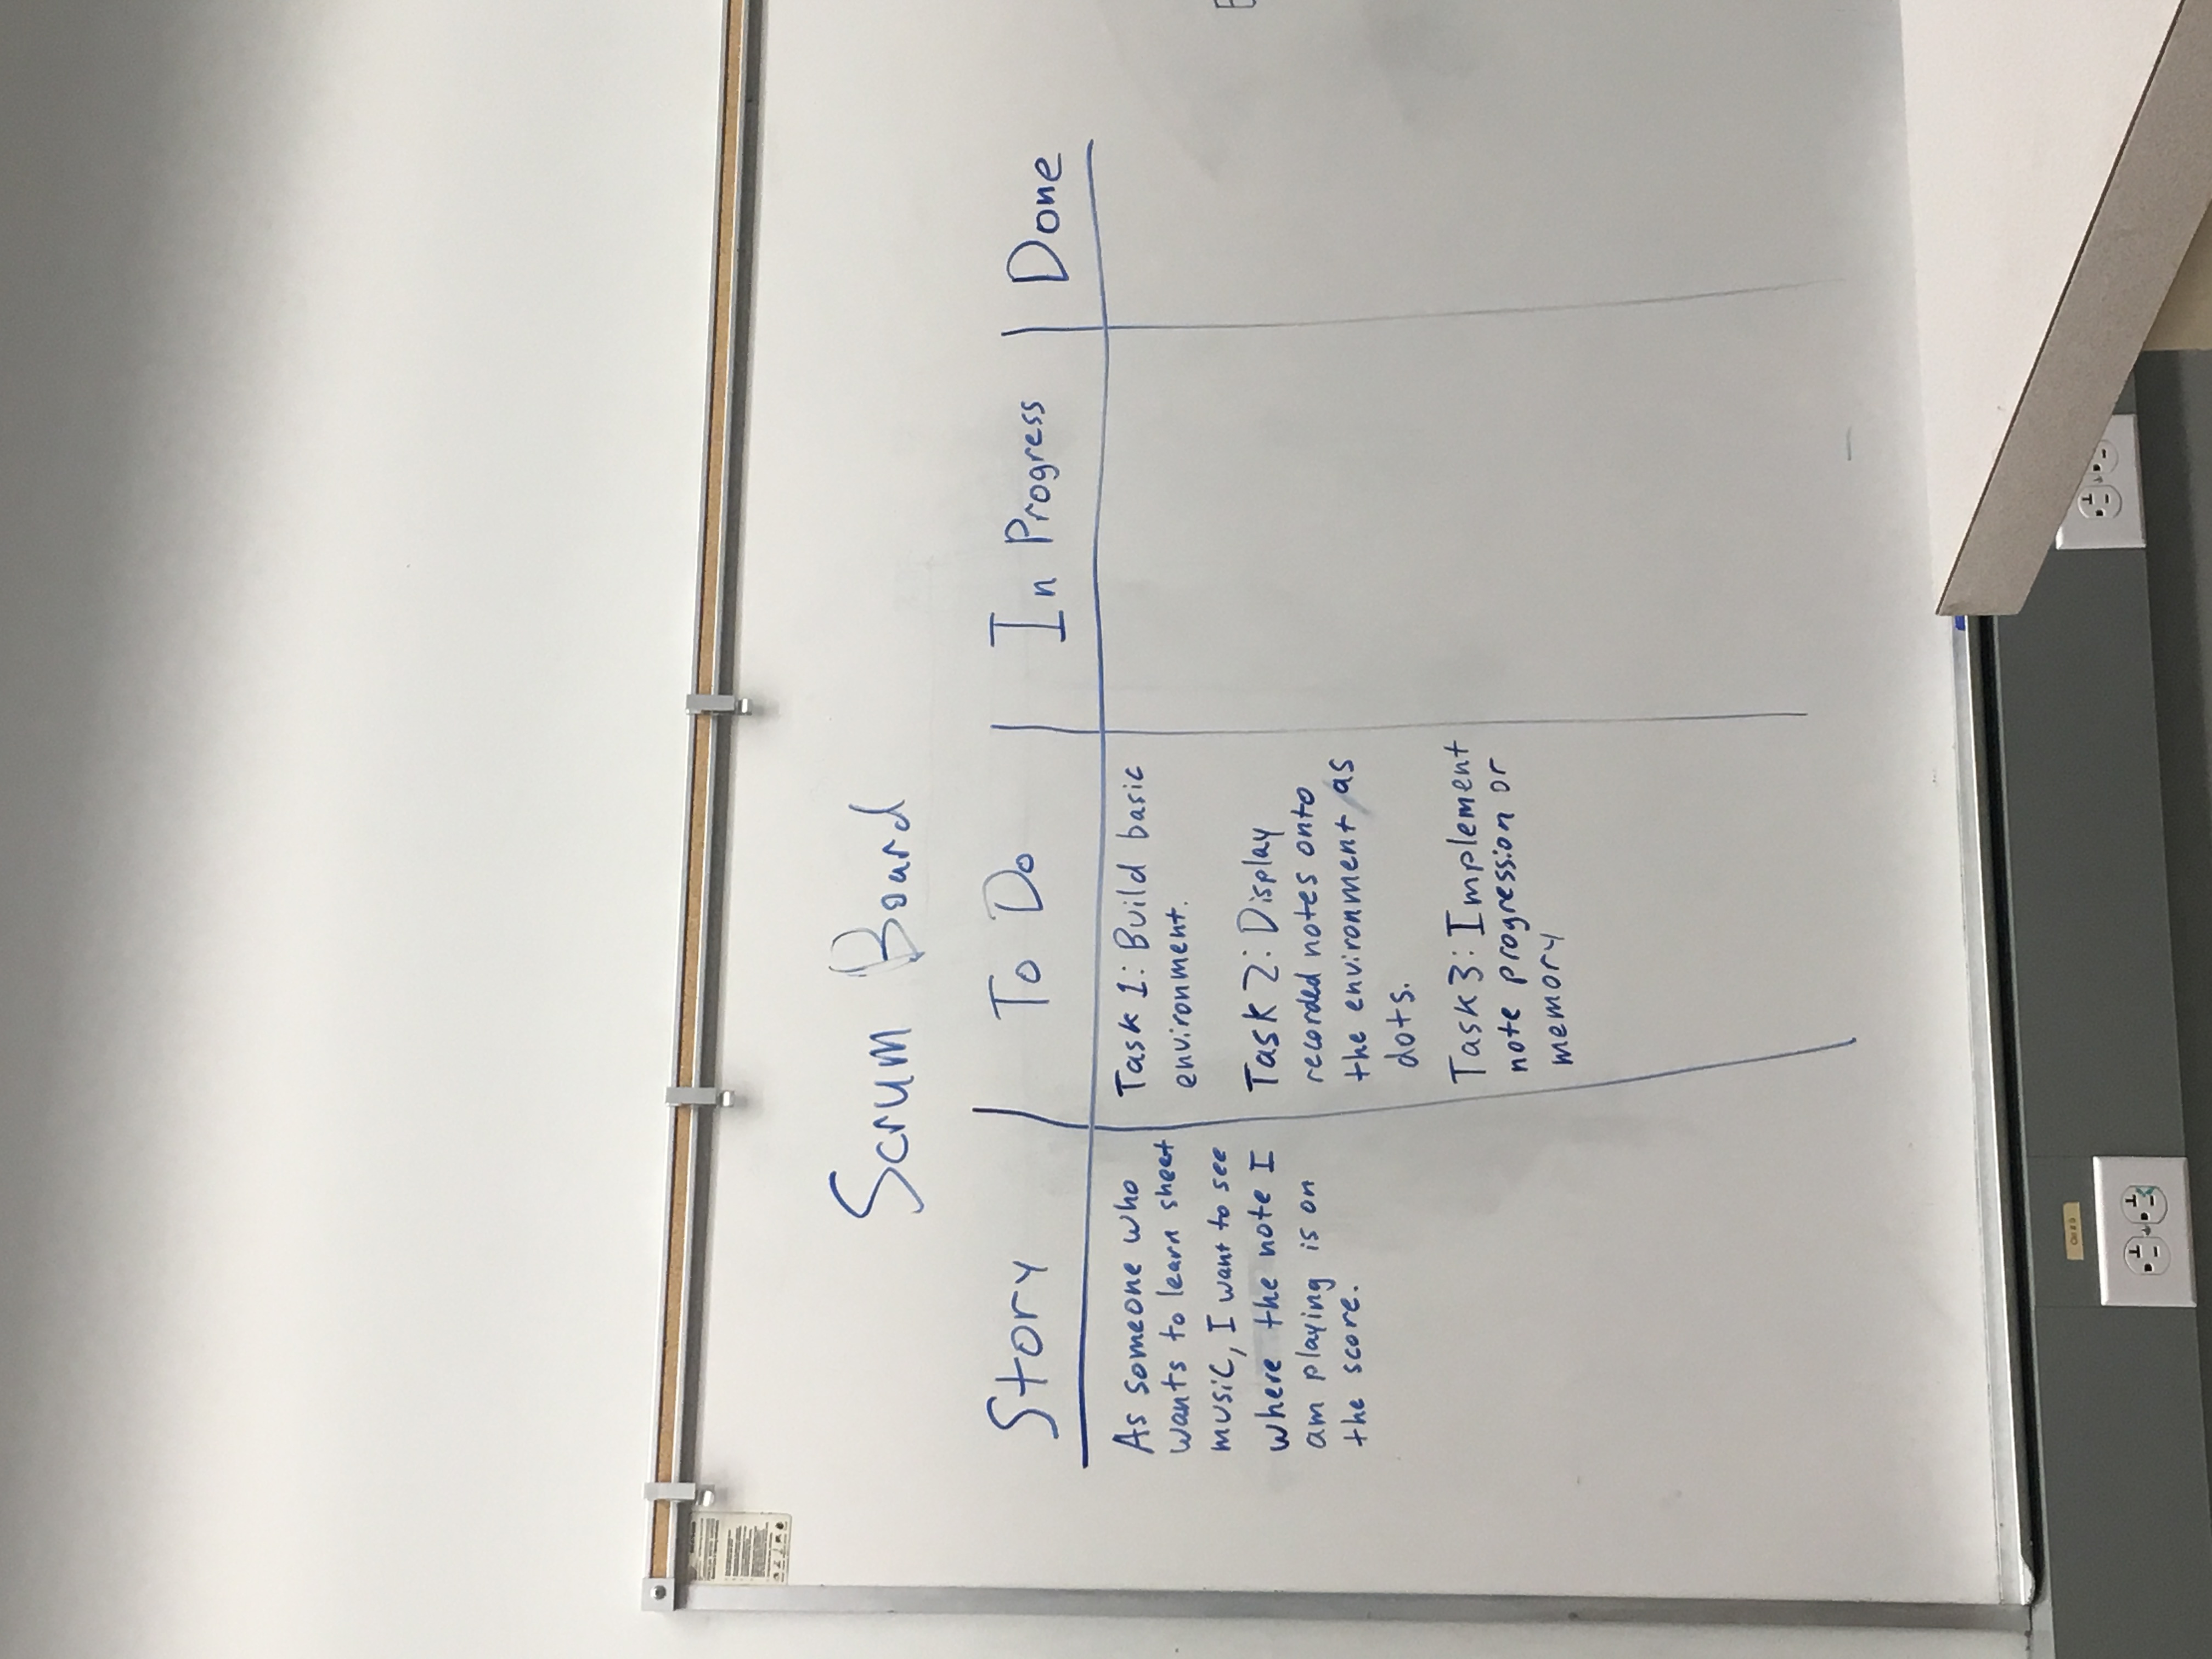 Scrum Board
Story
To Do
In Progress
Done
As someone who
wants to learn sheet
music, I want to see
where the note I
am playing is on
the score.
Task 1: Build basic
environment.
Task 2: Display
recorded notes onto
the environment as
dots.
Task 3: Implement
note progression or
memory